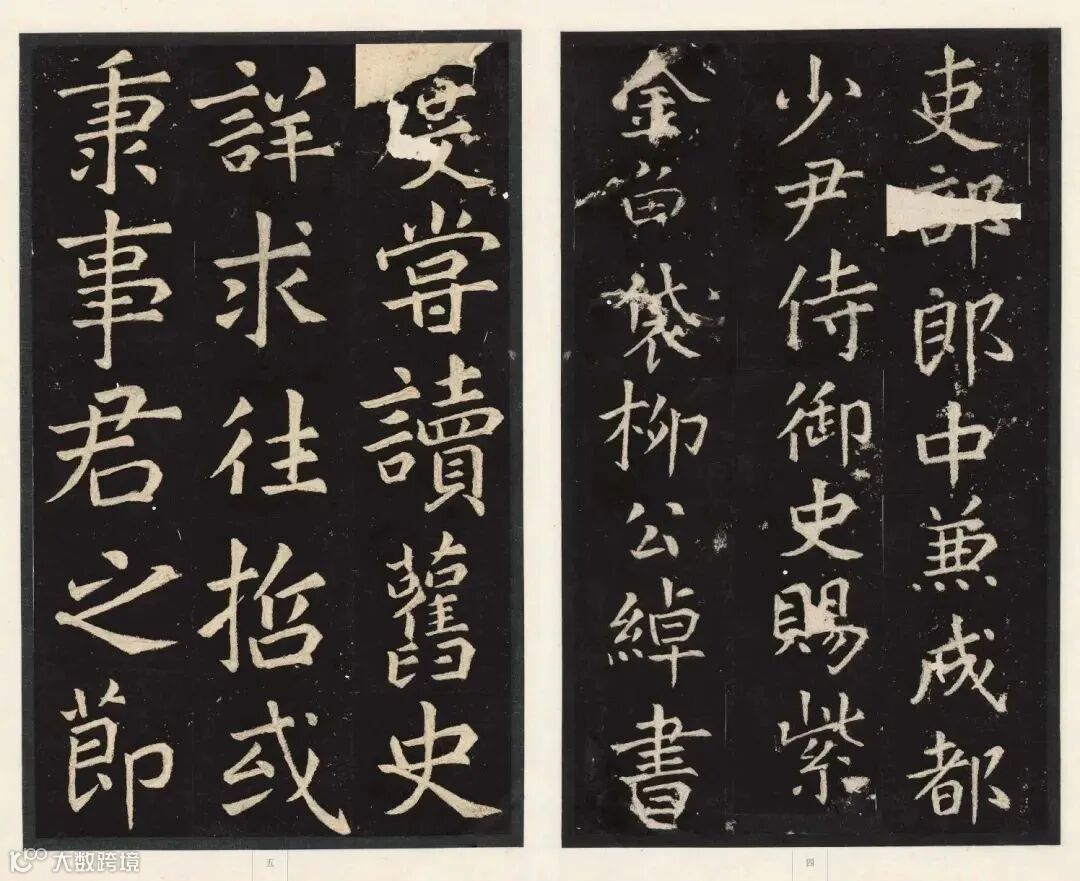 吏部郎中兼成都
少尹侍御史賜紫
金魚袋柳公綽書
度嘗讀舊史
詳求往哲或
秉事君之節
四
五
大数跨境